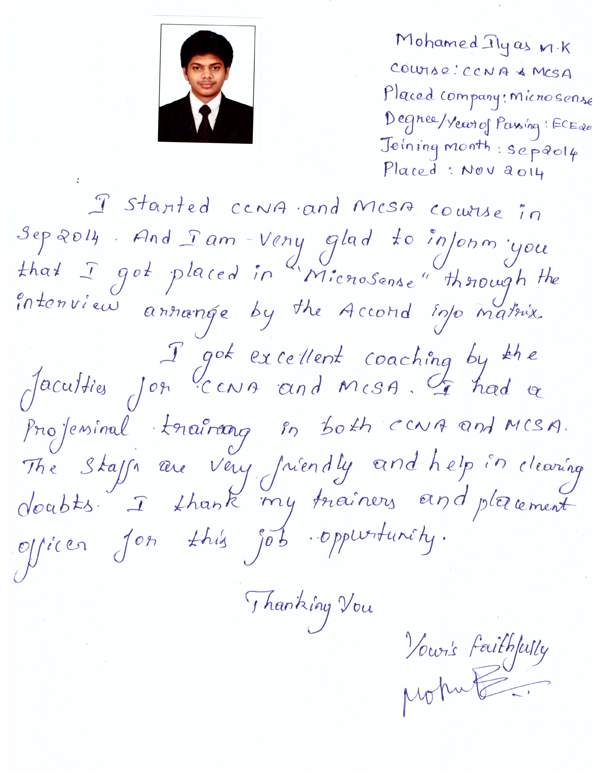 Mohamed Ilyas M.K
Course: CCNA & MCSA
Placed company: Microsense
Degree/Year of Passing: ECE20
Joining month: Sep2014
Placed : NOV 2014
I started CCNA and MCSA course in
Sep 2014. And I am very glad to inform you
that I got placed in "MicroSense" through the
interview arrange by the Accord info matrix.
I got excellent coaching by the
faculties for CCNA and MCSA. I had a
Profesinal trairang in both CCNA and MCSA.
The Staffs are very friendly and help in clearing
doubts. I thank my trainers and placement
officer for this job oppurtunity.
Thanking You
Your's Faithfully